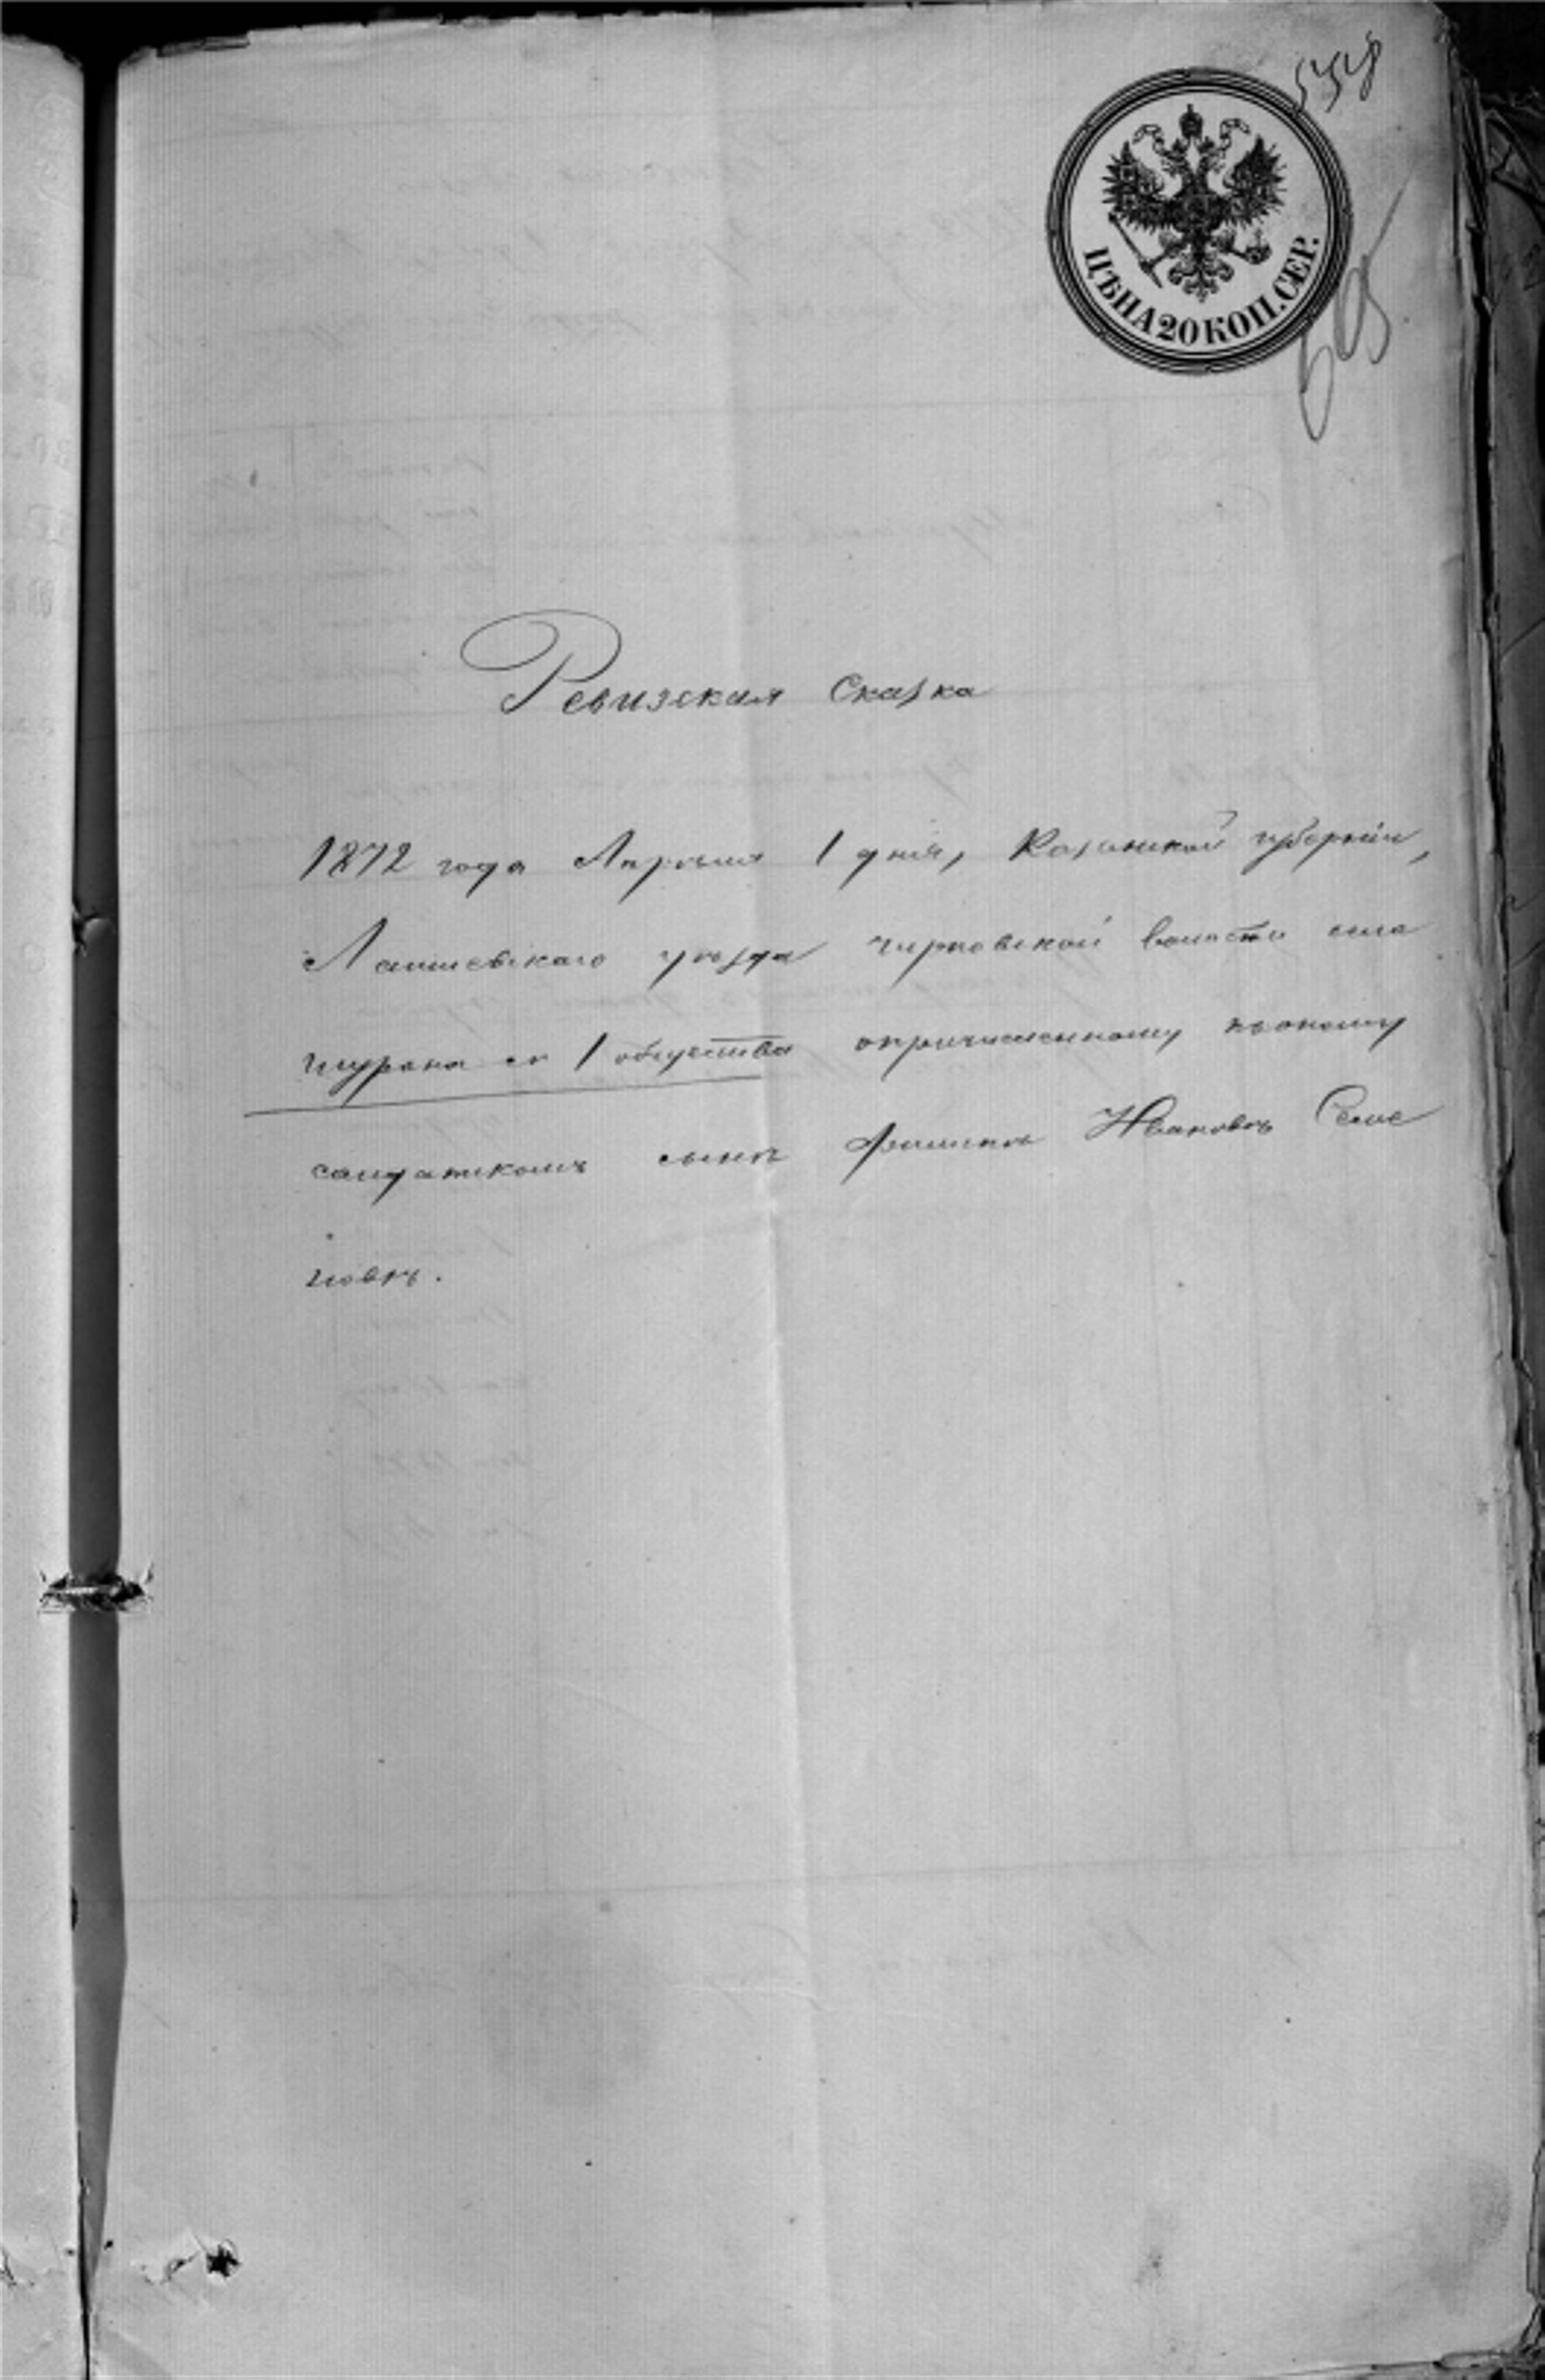 558
ЦѢНА 20 КОП. СЕР.
Ревизская Сказка
1872 года Апреля 1 дня, Казанской губернии,
Лаишевскаго уезда Чирповской волости села
Шурана 1 общества опричисленному къ оному
солдатскомъ сыне Ивановѣ Селиве